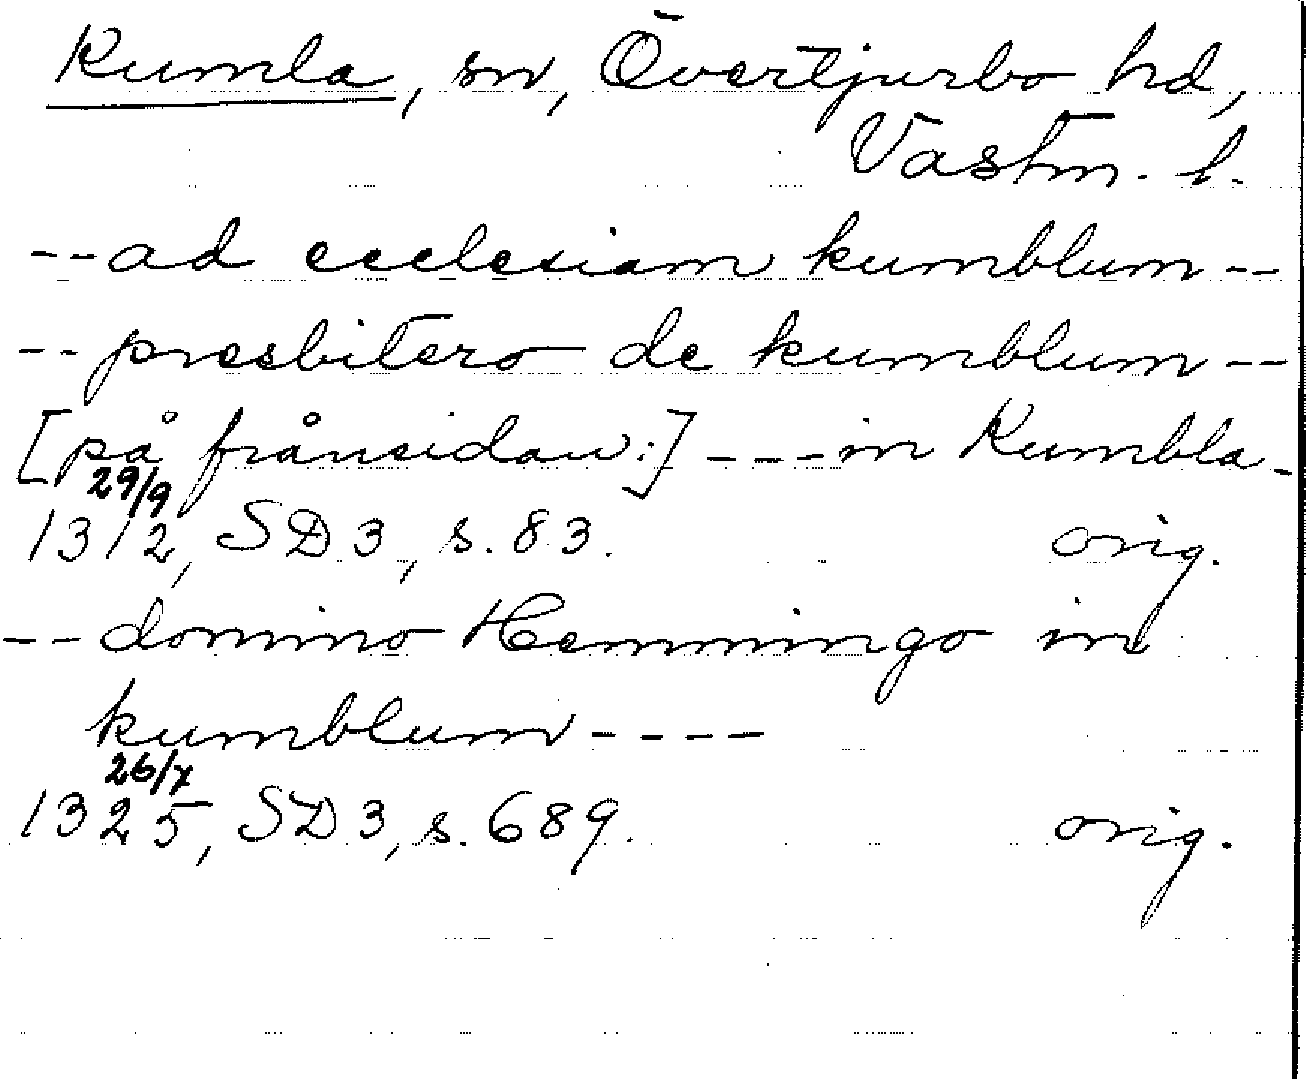 Kumla, sn, Övertjurbo hd,
Västm. l.
--ad ecclesiam kumblum--
--presbitero de kumblum--
[på frånsidan:]---in Kumbla-
29/9
1312, SD 3, s. 83. orig.
--domino Hemmingo in
kumblum----
26/7
1325, SD 3, s. 689. orig.